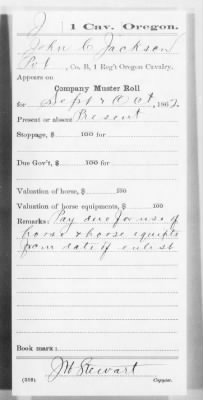 J 1 Cav. Oregon.
John C Jackson
Pvt, Co. B, 1 Reg't Oregon Cavalry.
Appears on
Company Muster Roll
for Sept & Oct, 1862.
Present or absent Present
Stoppage, $ 100 for
Due Gov't, $ 100 for
Valuation of horse, $ 100
Valuation of horse equipments, $ 100
Remarks: Pay due for use of
horse & horse equipts
from date of enlist
Book mark:
J W Stewart
(358) Copyist.